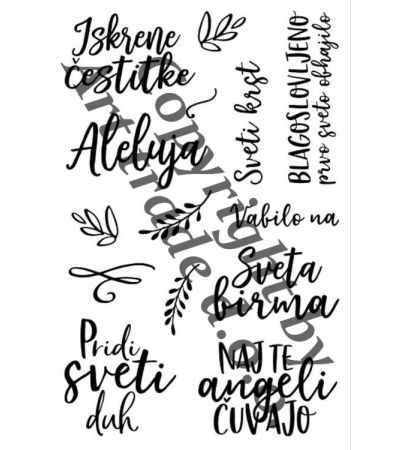 Iskrene
čestitke
Aleluja
Sveti krst
BLAGOSLOVLJENO
prvo sveto obhajilo
Vabilo na
Sveta
birma
Pridi
sveti
duh
NAJ TE
angeli
ČUVAJO
Copyright by
Arttrade d.o.o.